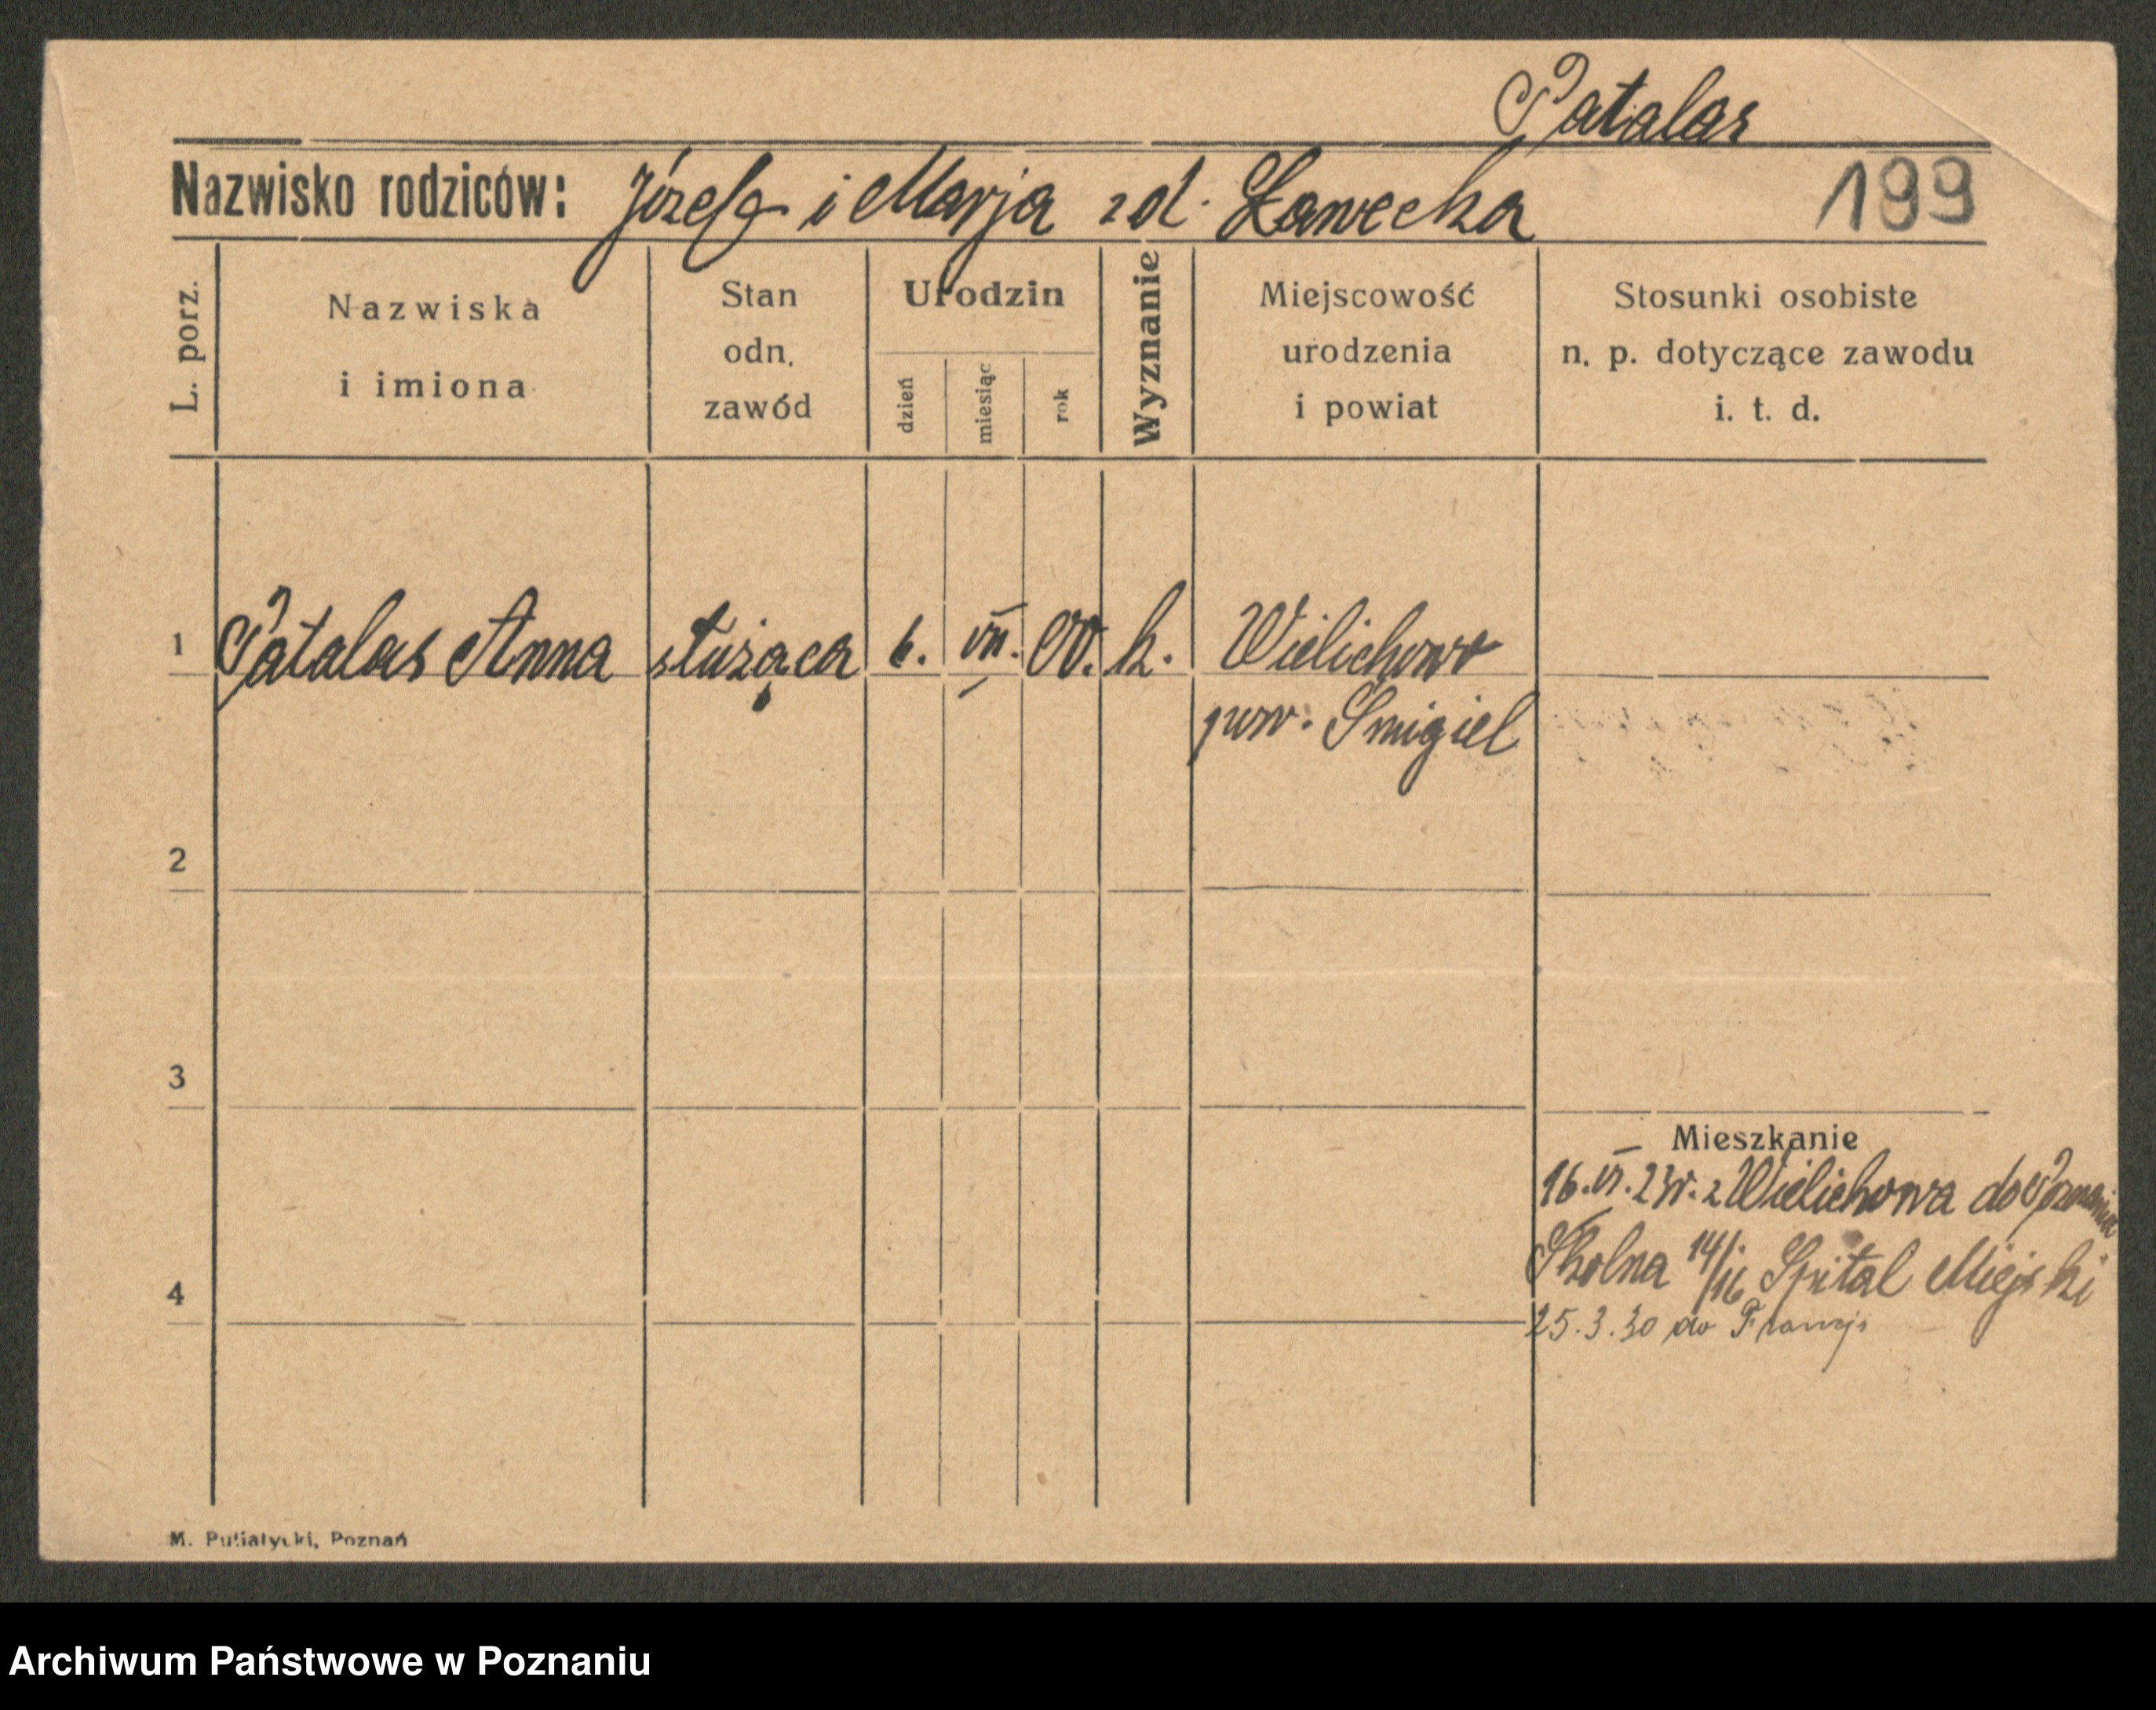 Patalas
Nazwisko rodziców: Józef i Marja zd. Ławecka 199
L. porz.
Nazwiska
i imiona
Stan
odn.
zawód
Urodzin
dzień
miesiąc
rok
Wyznanie
Miejscowość
urodzenia
i powiat
Stosunki osobiste
n. p. dotyczące zawodu
i. t. d.
1 Patalas Anna służąca 6. VII. 00. k. Wielichowo
pow. Śmigiel
2
3
Mieszkanie
16. VI. 23 r. z Wielichowa do Poznania
Szkolna 14/16 Szpital Miejski
4
25.3.30 do Francji
M. Putiatycki, Poznań
Archiwum Państwowe w Poznaniu